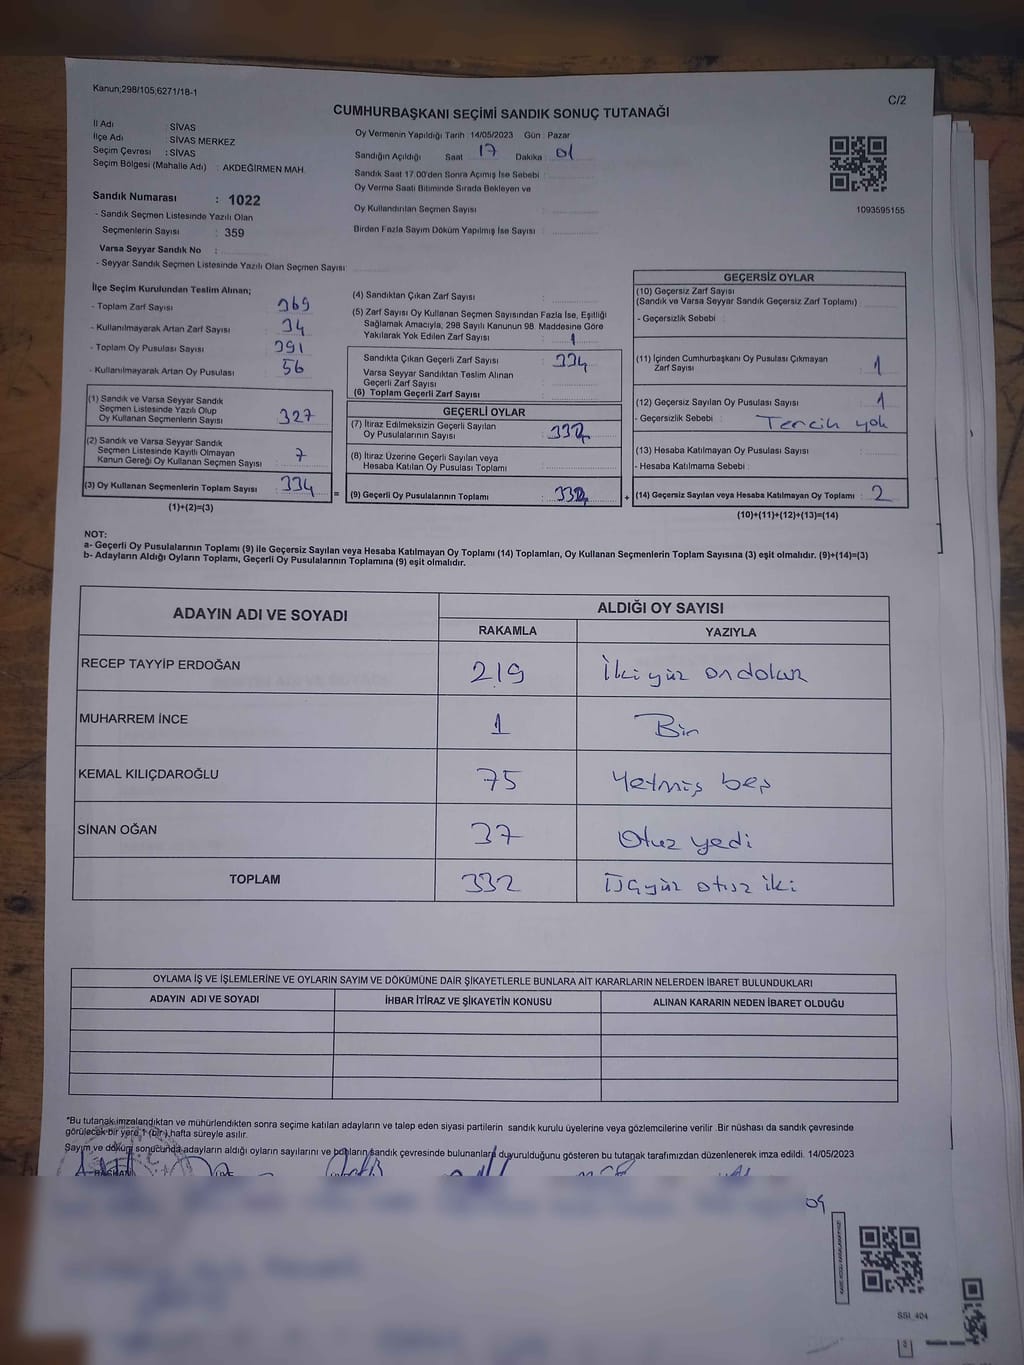 Kanun;298/105,6271/18-1
C/2
CUMHURBAŞKANI SEÇİMİ SANDIK SONUÇ TUTANAĞI
İl Adı : SİVAS
İlçe Adı : SİVAS MERKEZ
Seçim Çevresi : SİVAS
Seçim Bölgesi (Mahalle Adı) : AKDEĞİRMEN MAH.
Sandık Numarası : 1022
- Sandık Seçmen Listesinde Yazılı Olan
Seçmenlerin Sayısı : 359
Varsa Seyyar Sandık No :
- Seyyar Sandık Seçmen Listesinde Yazılı Olan Seçmen Sayısı:
Oy Vermenin Yapıldığı Tarih : 14/05/2023 Gün : Pazar
Sandığın Açıldığı Saat 17 Dakika 01
Sandık Saat 17.00'den Sonra Açımış İse Sebebi :
Oy Verme Saati Bitiminde Sırada Bekleyen ve
Oy Kullandırılan Seçmen Sayısı :
Birden Fazla Sayım Döküm Yapılmış İse Sayısı :
1093595155
İlçe Seçim Kurulundan Teslim Alınan;
- Toplam Zarf Sayısı : 369
- Kullanılmayarak Artan Zarf Sayısı : 34
- Toplam Oy Pusulası Sayısı : 391
- Kullanılmayarak Artan Oy Pusulası : 56
(1) Sandık ve Varsa Seyyar Sandık
Seçmen Listesinde Yazılı Olup
Oy Kullanan Seçmenlerin Sayısı : 327
(2) Sandık ve Varsa Seyyar Sandık
Seçmen Listesinde Kayıtlı Olmayan
Kanun Gereği Oy Kullanan Seçmen Sayısı : 7
(3) Oy Kullanan Seçmenlerin Toplam Sayısı : 334
(1)+(2)=(3)
=
(4) Sandıktan Çıkan Zarf Sayısı :
(5) Zarf Sayısı Oy Kullanan Seçmen Sayısından Fazla İse, Eşitliği
Sağlamak Amacıyla, 298 Sayılı Kanunun 98. Maddesine Göre
Yakılarak Yok Edilen Zarf Sayısı : 1
Sandıkta Çıkan Geçerli Zarf Sayısı : 334
Varsa Seyyar Sandıktan Teslim Alınan
Geçerli Zarf Sayısı :
(6) Toplam Geçerli Zarf Sayısı :
GEÇERLİ OYLAR
(7) İtiraz Edilmeksizin Geçerli Sayılan
Oy Pusulalarının Sayısı : 332
(8) İtiraz Üzerine Geçerli Sayılan veya
Hesaba Katılan Oy Pusulası Toplamı :
(9) Geçerli Oy Pusulalarının Toplamı : 332
+
GEÇERSİZ OYLAR
(10) Geçersiz Zarf Sayısı
(Sandık ve Varsa Seyyar Sandık Geçersiz Zarf Toplamı) :
- Geçersizlik Sebebi :
(11) İçinden Cumhurbaşkanı Oy Pusulası Çıkmayan
Zarf Sayısı : 1
(12) Geçersiz Sayılan Oy Pusulası Sayısı : 1
- Geçersizlik Sebebi : Tercih yok
(13) Hesaba Katılmayan Oy Pusulası Sayısı :
- Hesaba Katılmama Sebebi :
(14) Geçersiz Sayılan veya Hesaba Katılmayan Oy Toplamı : 2
(10)+(11)+(12)+(13)=(14)
NOT:
a- Geçerli Oy Pusulalarının Toplamı (9) ile Geçersiz Sayılan veya Hesaba Katılmayan Oy Toplamı (14) Toplamları, Oy Kullanan Seçmenlerin Toplam Sayısına (3) eşit olmalıdır. (9)+(14)=(3)
b- Adayların Aldığı Oyların Toplamı, Geçerli Oy Pusulalarının Toplamına (9) eşit olmalıdır.
ADAYIN ADI VE SOYADI ALDIĞI OY SAYISI
RAKAMLA YAZIYLA
RECEP TAYYİP ERDOĞAN 219 İkiyüz ondokuz
MUHARREM İNCE 1 Bir
KEMAL KILIÇDAROĞLU 75 Yetmiş beş
SİNAN OĞAN 37 Otuz yedi
TOPLAM 332 Üçyüz otuz iki
OYLAMA İŞ VE İŞLEMLERİNE VE OYLARIN SAYIM VE DÖKÜMÜNE DAİR ŞİKAYETLERLE BUNLARA AİT KARARLARIN NELERDEN İBARET BULUNDUKLARI
ADAYIN ADI VE SOYADI İHBAR İTİRAZ VE ŞİKAYETİN KONUSU ALINAN KARARIN NEDEN İBARET OLDUĞU
*Bu tutanak imzalandıktan ve mühürlendikten sonra seçime katılan adayların ve talep eden siyasi partilerin sandık kurulu üyelerine veya gözlemcilerine verilir .Bir nüshası da sandık çevresinde
görülecek bir yere 1 (bir) hafta süreyle asılır.
Sayım ve döküm sonucunda adayların aldığı oyların sayılarını ve bunların sandık çevresinde bulunanlara duyurulduğunu gösteren bu tutanak tarafımızdan düzenlenerek imza edildi. 14/05/2023
BAŞKAN
SSI_404